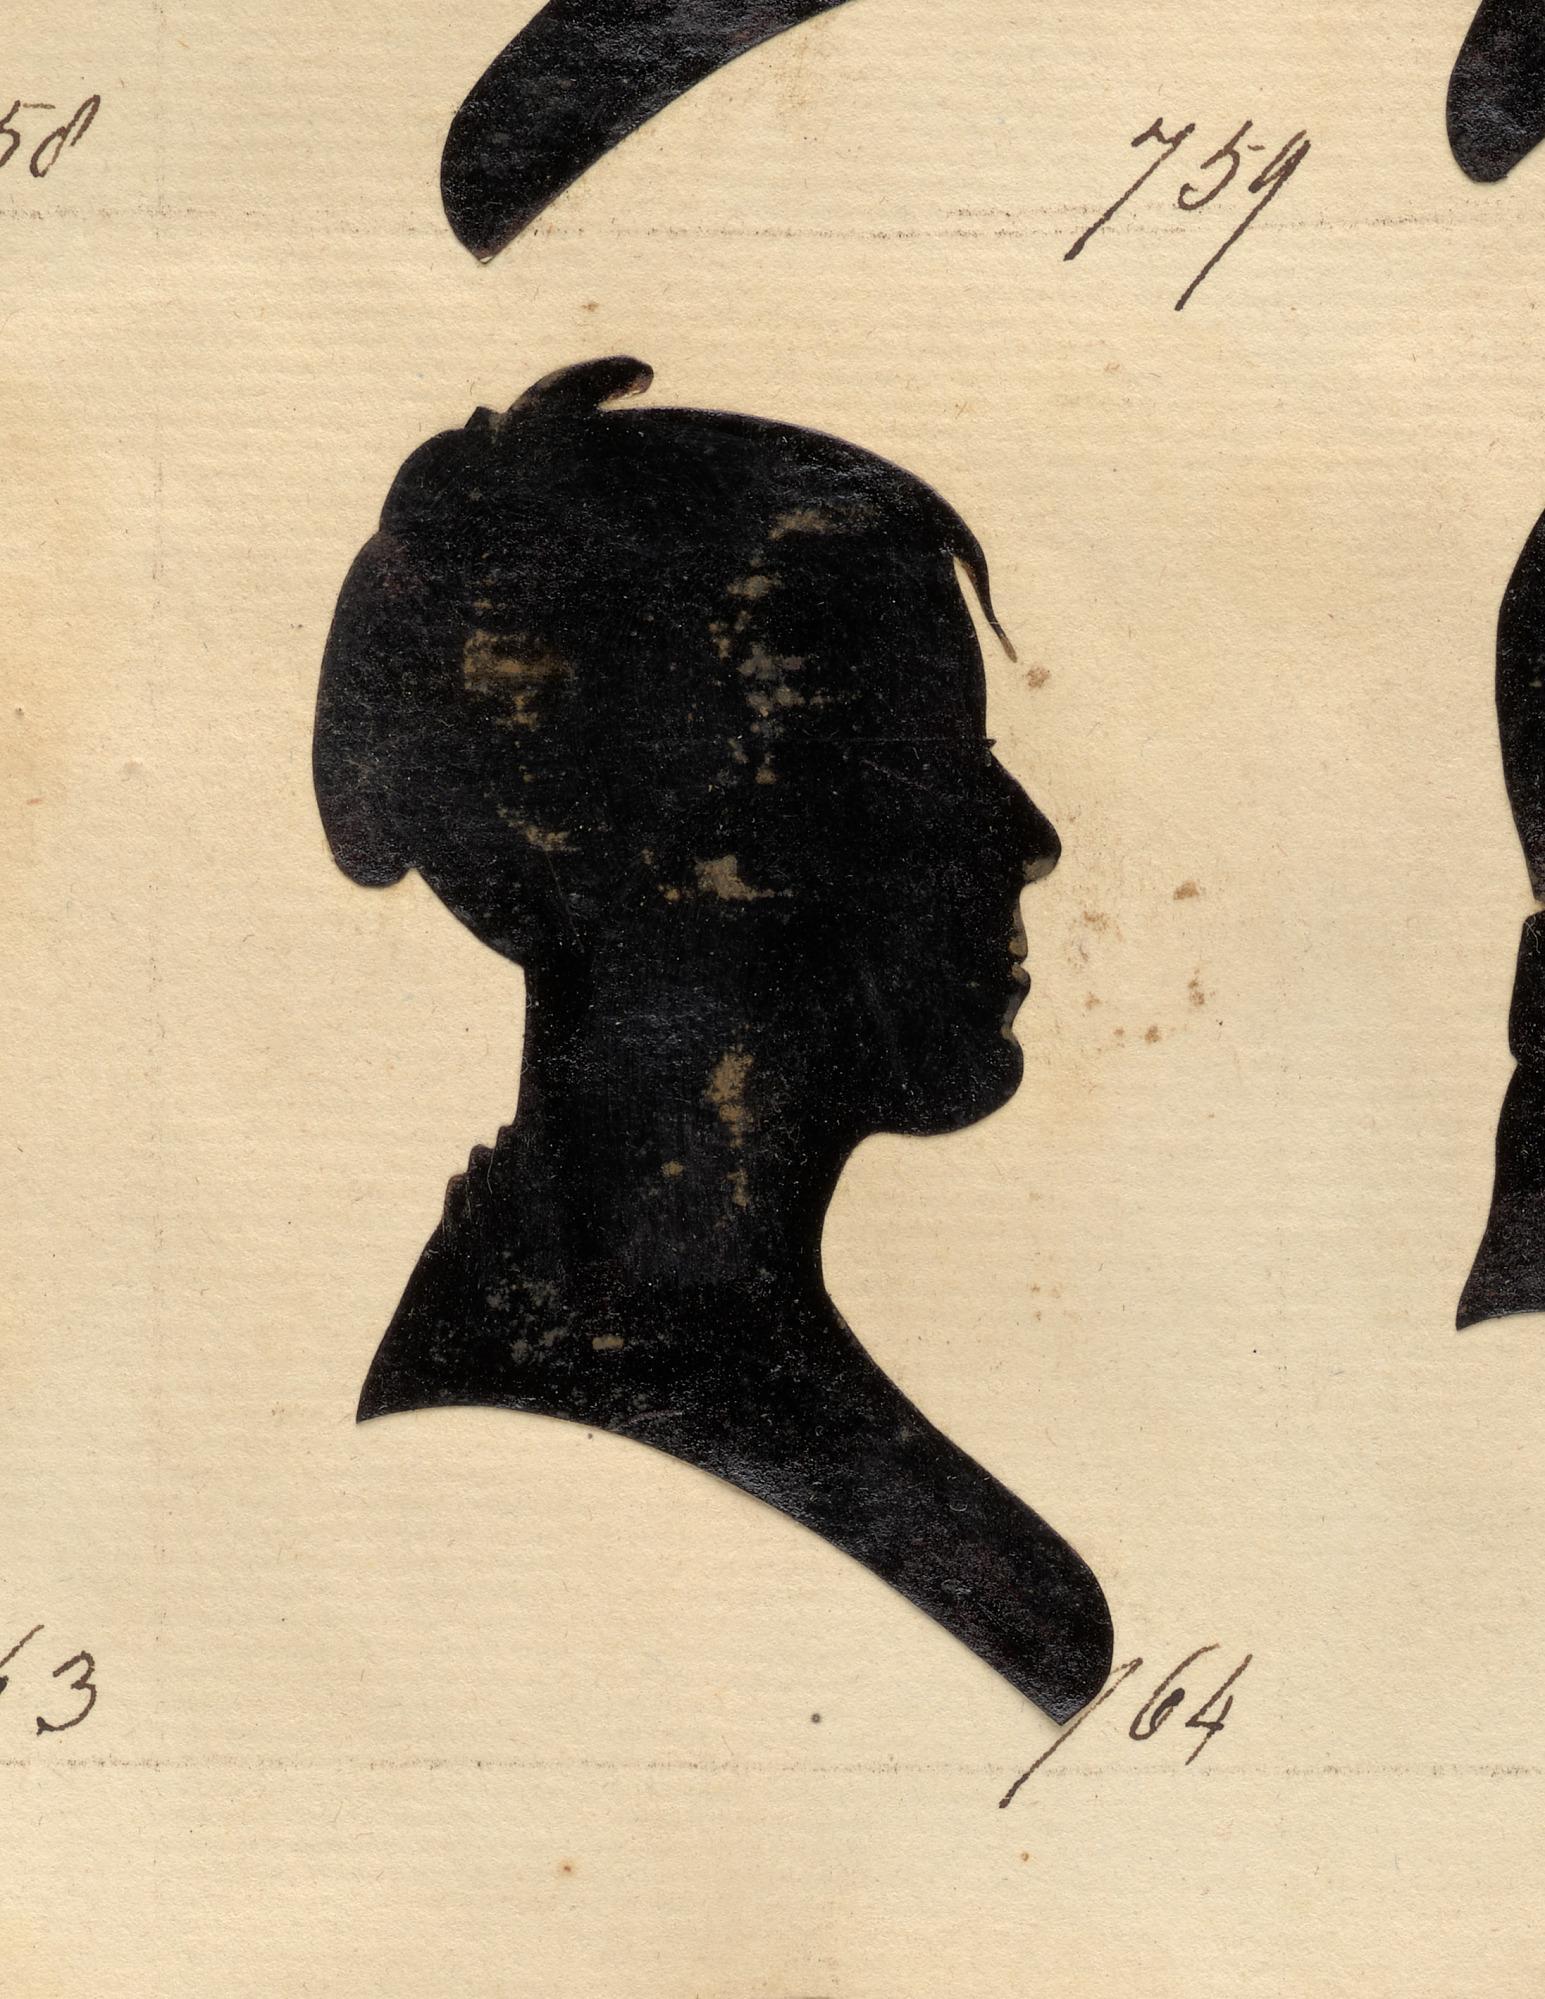 58 759
63 764